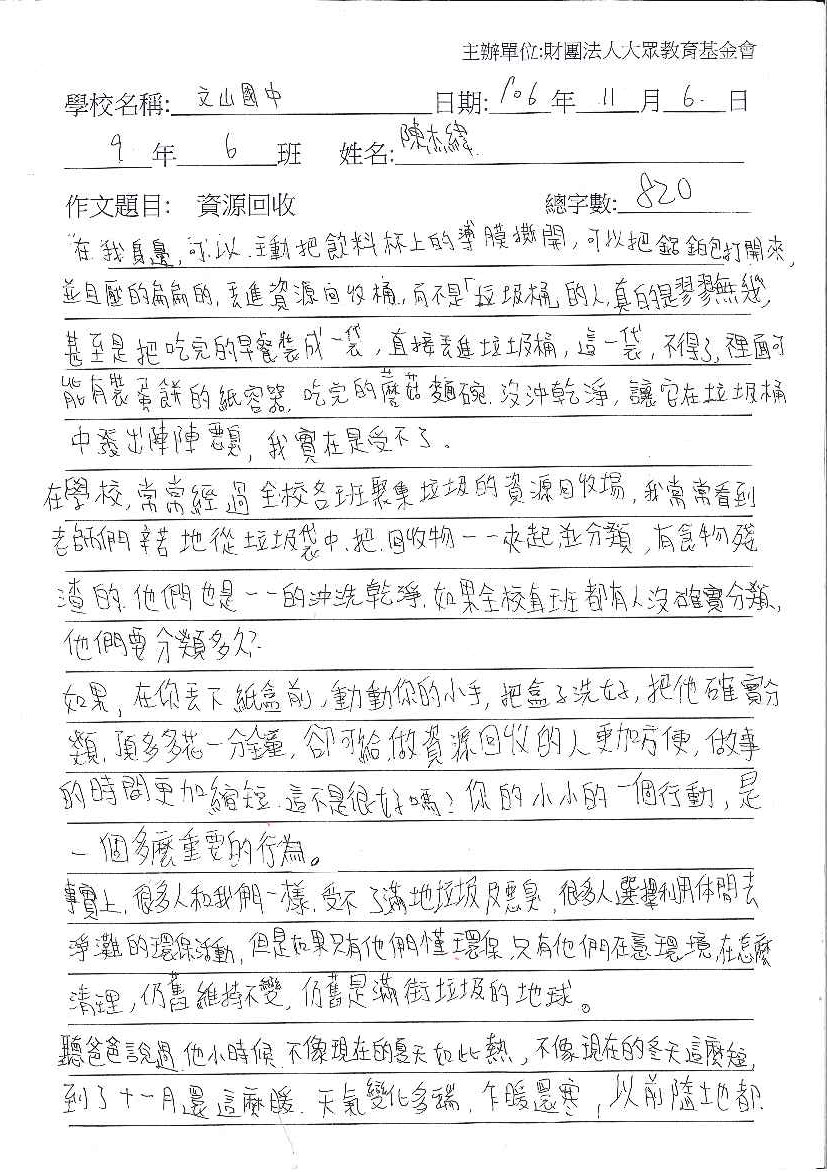 主辦單位:財團法人大眾教育基金會
學校名稱: 文山國中 日期: 106 年 11 月 6. 日
9 年 6 班 姓名: 陳杰緯
作文題目: 資源回收 總字數: 820
在我身邊,可以主動把飲料杯上的薄膜撕開,可以把鋁鉑包打開來,
並且壓的扁扁的,丟進資源回收桶,而不是「垃圾桶」的人,真的是寥寥無幾,
甚至是把吃完的早餐裝成一袋,直接丟進垃圾桶,這一袋,不得了,裡面可
能有裝蛋餅的紙容器,吃完的蘑菇麵碗,沒沖乾淨,讓它在垃圾桶
中發出陣陣惡臭,我實在是受不了。
在學校,常常經過全校各班聚集垃圾的資源回收場,我常常看到
老師們辛苦地從垃圾袋中,把回收物一一夾起並分類,有食物殘
渣的,他們也是一一的沖洗乾淨,如果全校每班都有人沒確實分類,
他們要分類多久?
如果,在你丟下紙盒前,動動你的小手,把盒子洗好,把他確實分
類,頂多多花一分鐘,卻可給做資源回收的人更加方便,做事
的時間更加縮短,這不是很好嗎?你的小小的一個行動,是
一個多麼重要的行為。
事實上,很多人和我們一樣,受不了滿地垃圾及惡臭,很多人選擇利用休閒去
淨灘的環保活動,但是如果只有他們懂環保,只有他們在意環境,在怎麼
清理,仍舊維持不變,仍舊是滿街垃圾的地球。
聽爸爸說過,他小時候,不像現在的夏天如此熱,不像現在的冬天這麼短,
到了十一月還這麼暖,天氣變化多端,乍暖還寒,以前隨地都